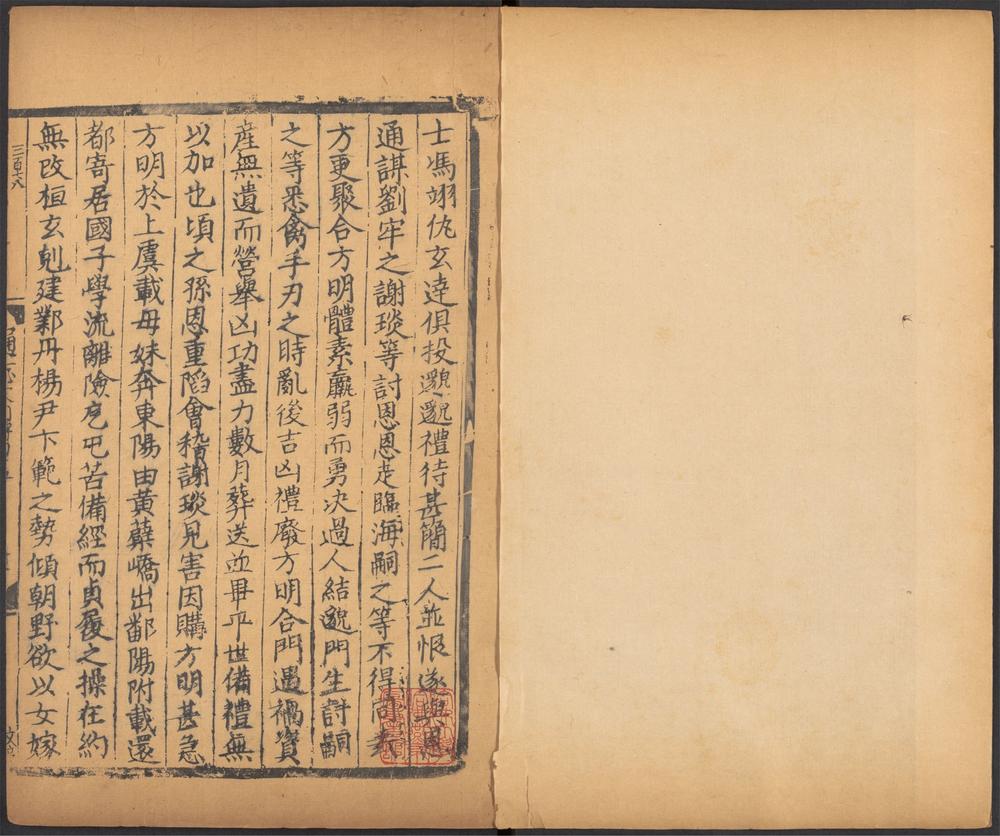 士馮翊仇玄達俱投邈邈禮待甚簡二人並恨遂與恩
通謀劉牢之謝琰等討恩恩走臨海嗣之等不得同去
方更聚合方明體素羸弱而勇决過人結邈門生討嗣
之等悉禽手刃之時亂後吉凶禮廢方明合門遇禍資
産無遺而營舉凶功盡力數月葬送並畢平世備禮無
以加也頃之孫恩重䧟會稽謝琰見害因購方明甚急
方明於上虞載母妹奔東陽由黃蘗嶠出鄱陽附載還
都寄居國子學流離險戹屯苦備經而貞履之操在約
無改桓玄剋建鄴丹楊尹卞範之勢傾朝野欲以女嫁
三百十八